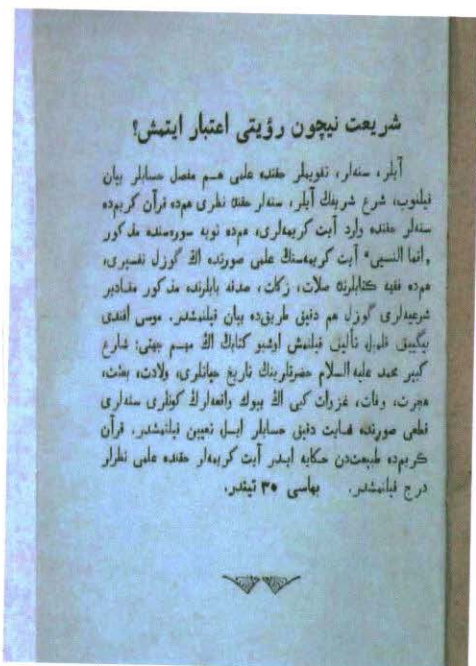 شريعت نيچون رؤيتى اعتبار ايتمش؟
آيلر، سنه‌لر، تقويملر حقنده علمى هم مفصل حسابلر بيان
قيلنوب، شرع شريفنڭ آيلر، سنه‌لر حقنده نظرى هم‌ده قرآن كريم‌ده
سنه‌لر حقنده وارد آيت كريمه‌لرى، هم‌ده توبه سوره‌سنده مذكور
„انما النسيئ“ آيت كريمه‌سنڭ علمى صورتده اڭ گوزل تفسيرى،
هم‌ده فقيه كتابلرنده صلات، زكات، صدقه بابلرنده مذكور مقادير
شرعيه‌لرى گوزل هم دقيق طريق‌ده بيان قيلنمشدر. موسى افندى
بيگييف قلميل تأليف قيلنمش اوشبو كتابنڭ اڭ مهم جهتى: شارع
كبير محمد عليه السلام حضرتلرينڭ تاريخ حياتلرى، ولادت، بعثت،
هجرت، وفات، غزوات كبى اڭ بيوك واقعه‌لرڭ كونلرى سنه‌لرى
قطعى صورتده غايت دقيق حسابلر ايله تعيين قيلنمشدر. قرآن
كريم‌ده طبيعت‌دن حكايه ايدر آيت كريمه‌لر حقنده علمى نظرلر
درج قيلنمشدر. بهاسى ٣٥ تيندر.